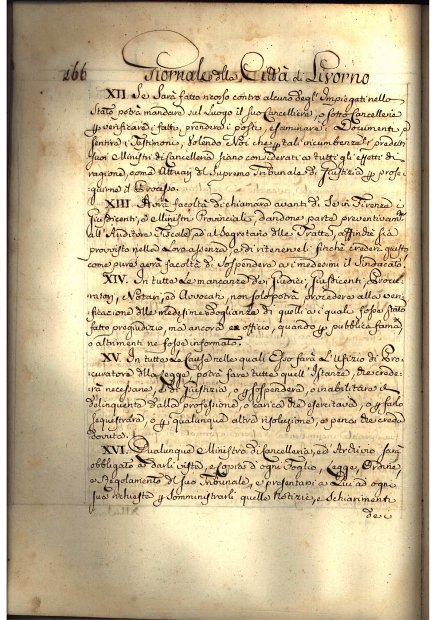 166 Giornale della Città di Livorno
XII. Se sarà fatto ricorso contro alcuno degl' Impiegati nello
Stato potrà mandare sul Luogo il suo Cancelliere, o sotto Cancelliere
p verificare i fatti, prendere i posti, esaminare i Documenti, e
sentire i Testimonj, Volendo Noi che p tali incumbenze i predetti
suoi Ministri di Cancelleria siano considerati a tutti gl'effetti di
ragione, come Attuarj del Supremo Tribunale di Giustizia p prose-
guirne il Processo.
XIII. Avrà facoltà di chiamare avanti di Se in Firenze i
Giusdicenti, e Ministri Provinciali, dandone parte preventivam.
all' Auditore Fiscale, ed al Segretario delle Tratte, affinchè sia
provvisto nella Loro assenza, e di ritenerveli finchè crederà giusto
come pure averà facoltà di sospendere a i medesimi il Sindacato.
XIV. In tutte le mancanze dei Giudici, Giusdicenti, Procu-
ratori, Notari, ed Avvocati, non solo potrà procedere alla veri-
ficazione delle medesime doglianze di quelli a i quali fosse stato
fatto pregiudizio, ma ancora ex officio, quando p pubblica fama,
o altrimenti ne fosse informato.
XV. In tutte le Cause nelle quali Esso farà l'Ufizio di Pro-
curatore della Legge, potrà fare tutte quell' Istanze, che crede-
rà necessarie, di Giustizia o p sospendere, o inabilitare il
delinquente dalla professione, o carica che esercitava, o p farlo
sequestrare, o p qualunque altra risoluzione, o pena che creda
dovuta.
XVI. Qualunque Ministro di Cancelleria, ed Archivio sarà
obbligato a darli vista, e Copia d'ogni Foglio, Legge, Ordine,
e Regolamento di suo Tribunale, e presentarsi a Lui ad ogni
sua richiesta p somministrarli quelle Notizie, e schiarimenti